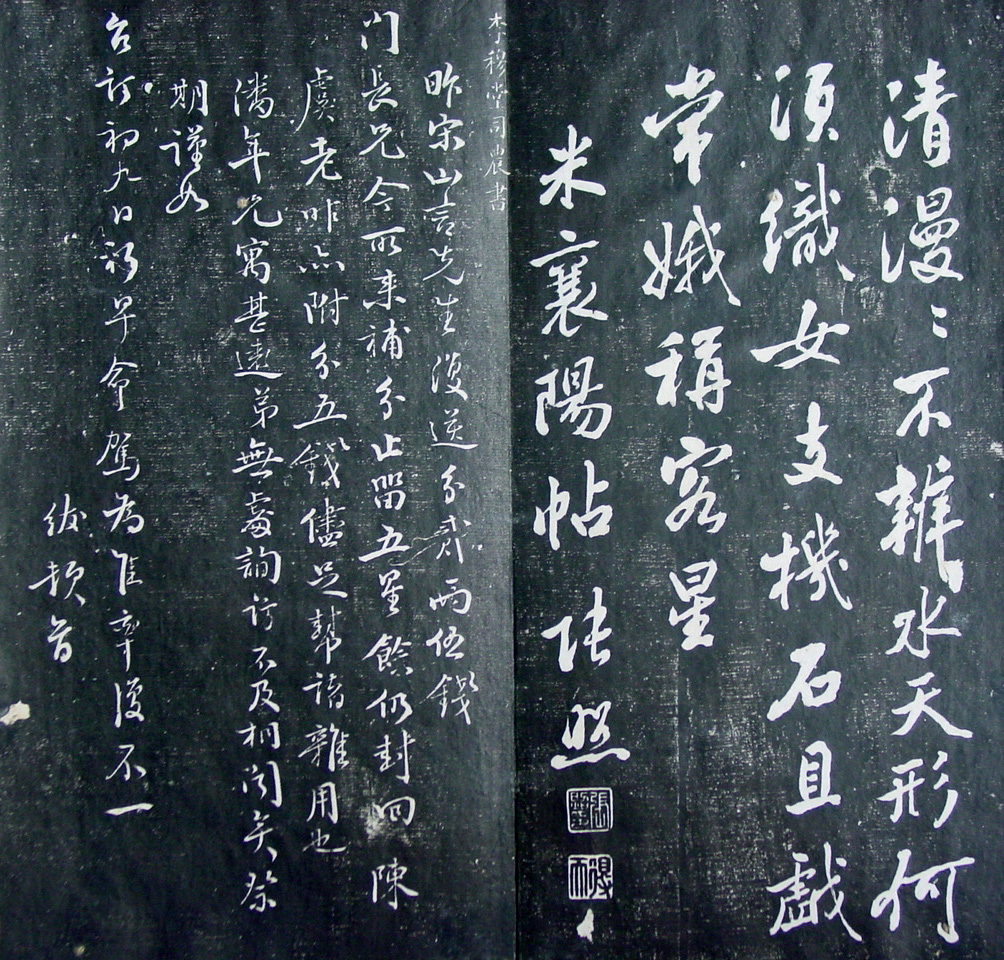 清漫〻不辨水天形何
須織女支機石且戲
常娥稱客星
米襄陽帖 張照
張照
得天
李穆堂同農書
昨宋山言先生復送分貳兩伍錢
门長兄今所來補分止留五星餘仍封回陳
虞老昨亦附分五錢儘足幫諸雜用也
潘年兄寓甚遠弟無處詢訪不及相聞矣祭
期謹如
台訂初九日祈早命駕為佳幸復不一
紱頓首